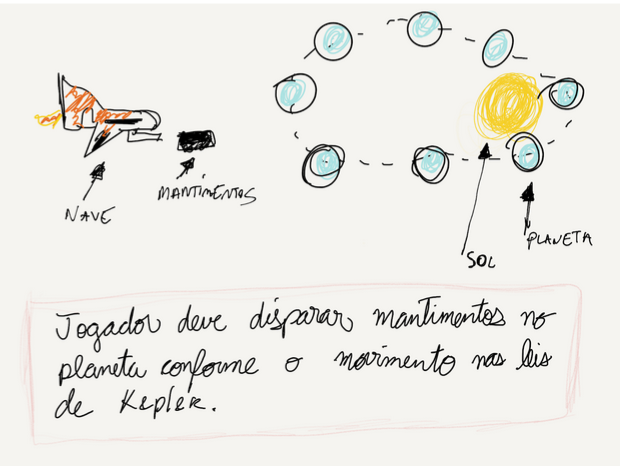 NAVE
MANTIMENTOS
SOL
PLANETA
Jogador deve disparar mantimentos no
planeta conforme o movimento nas leis
de Kepler.